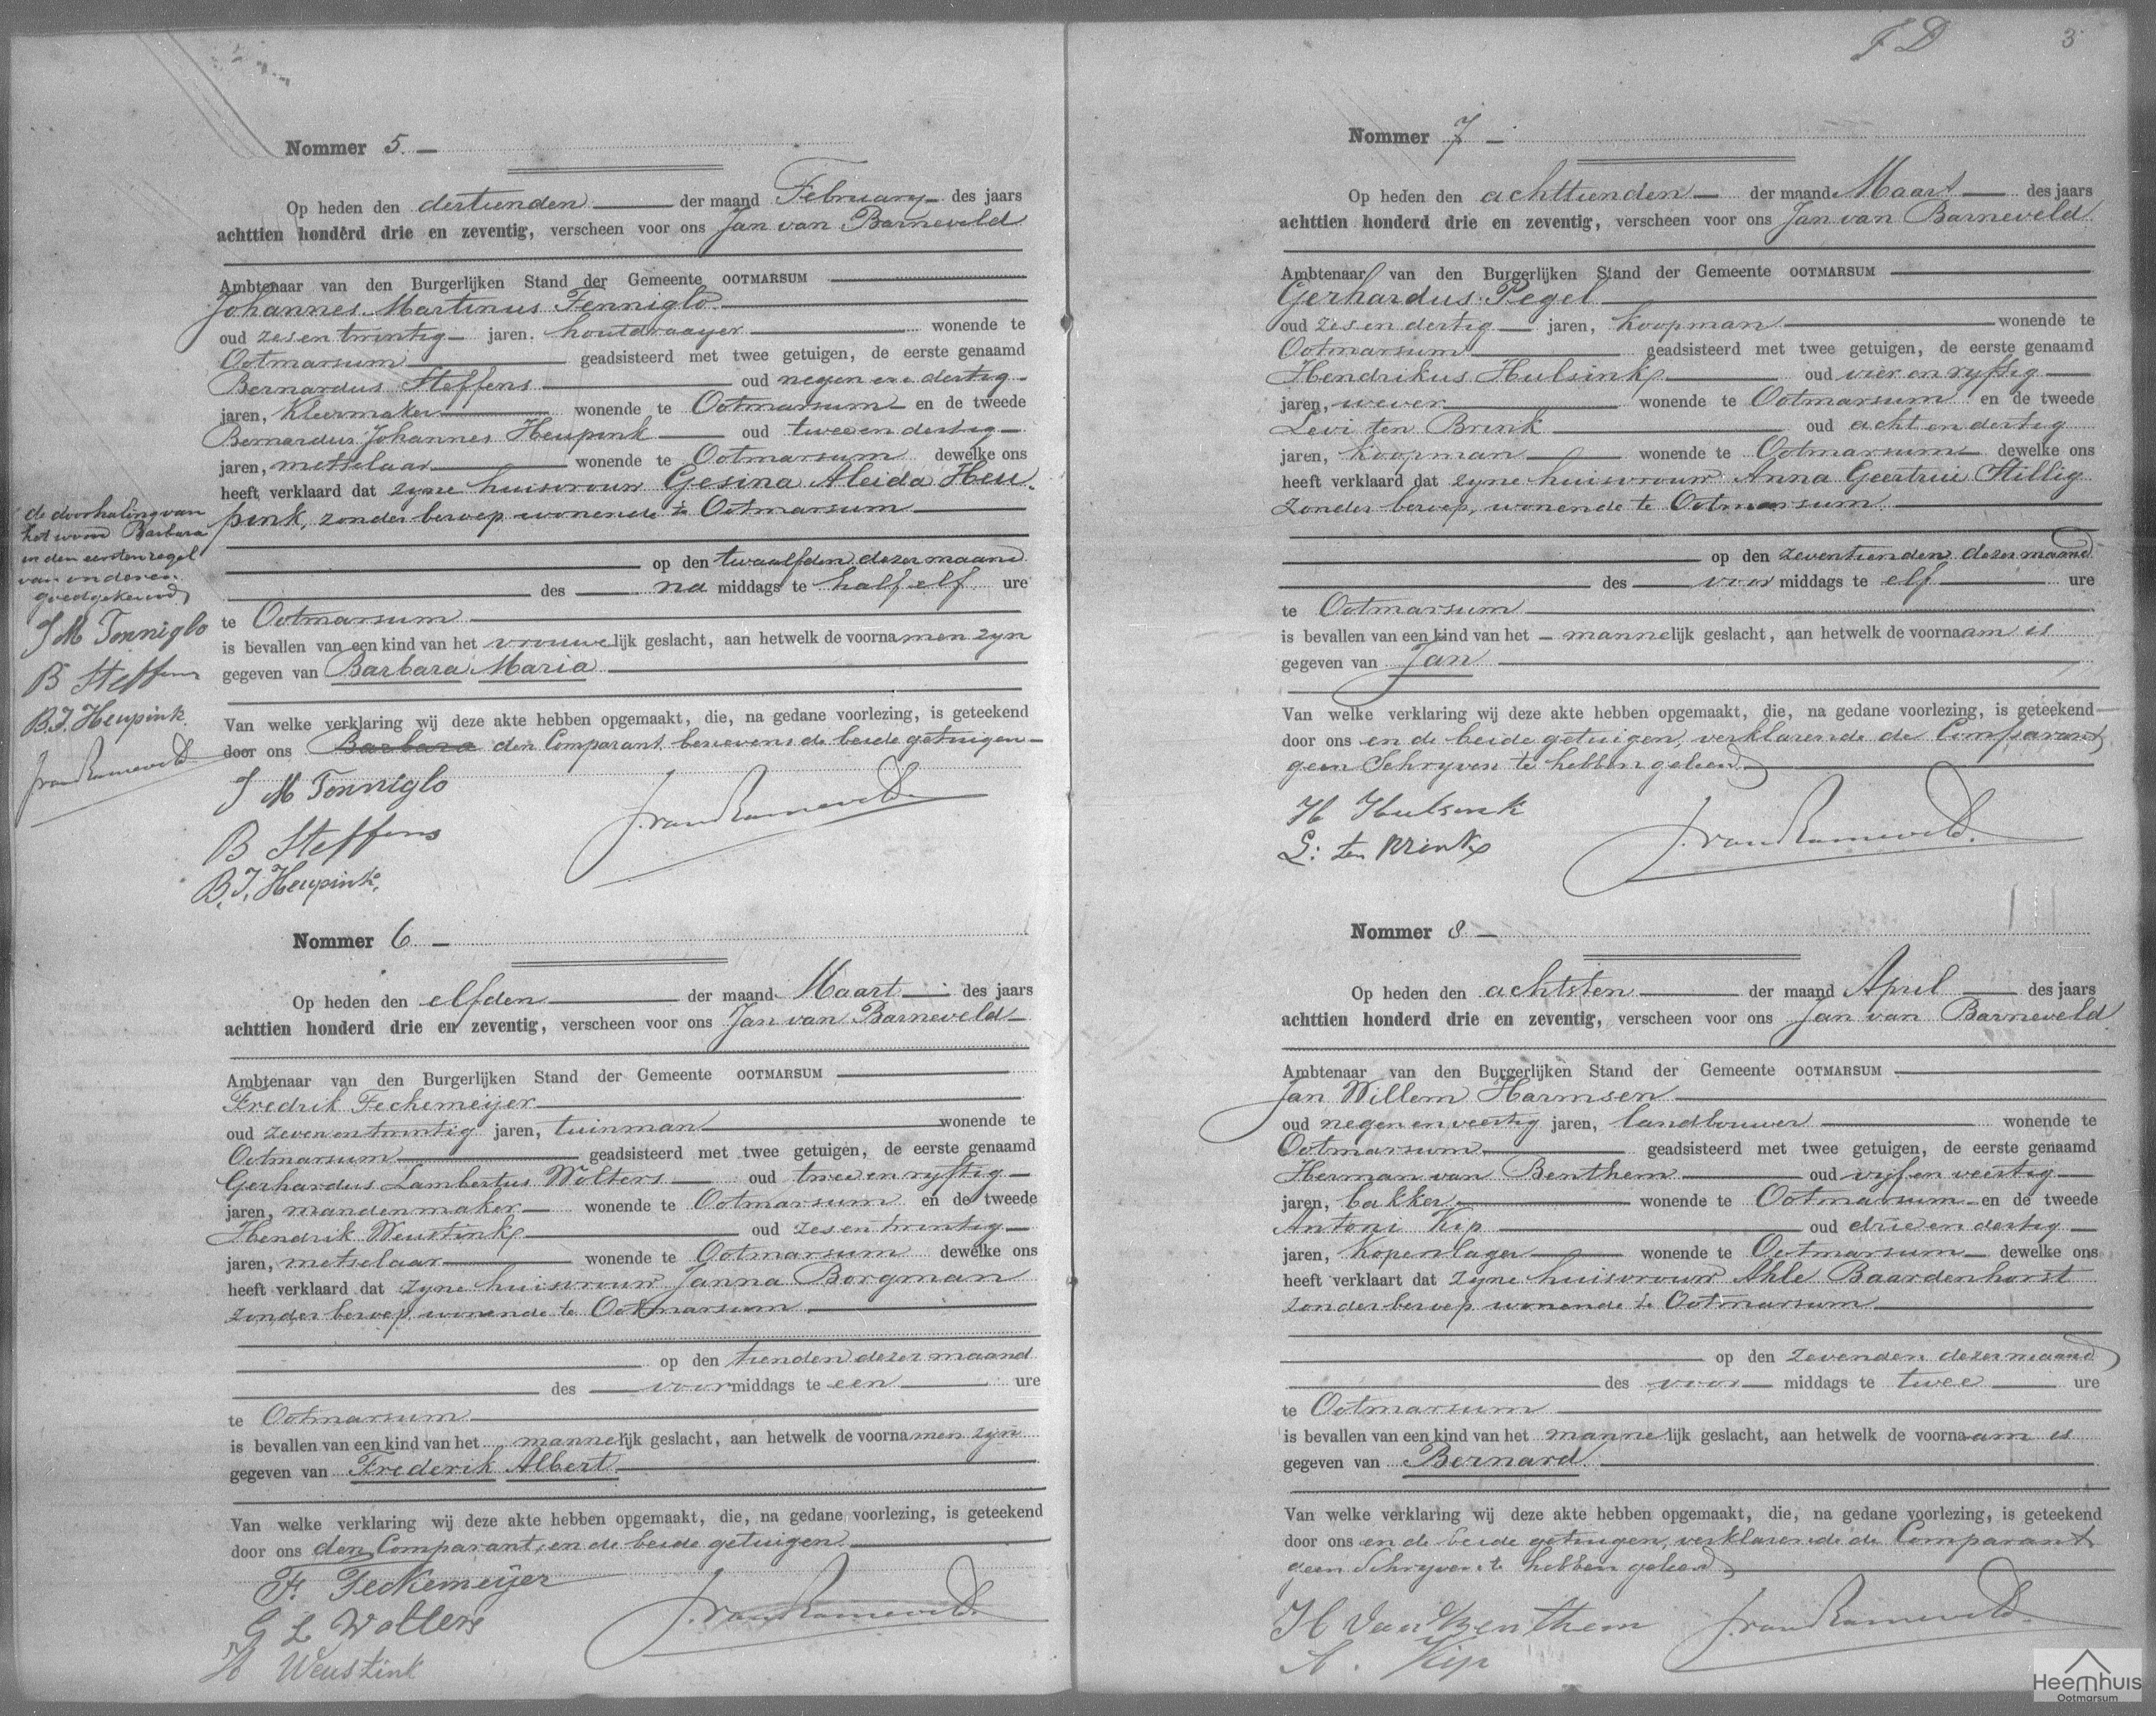 Nommer 5.
Op heden den dertienden der maand February des jaars
achttien honderd drie en zeventig, verscheen voor ons Jan van Barneveld
Ambtenaar van den Burgerlijken Stand der Gemeente OOTMARSUM
Johannes Martinus Tenniglo
oud zes en twintig jaren, houtdraayer wonende te
Ootmarsum geadsisteerd met twee getuigen, de eerste genaamd
Bernardus Steffens oud negen en dertig
jaren, Kleermaker wonende te Ootmarsum en de tweede
Bernardus Johannes Heupink oud twee en dertig
jaren, metselaar wonende te Ootmarsum dewelke ons
heeft verklaard dat zyne huisvrouw Gesina Aleida Heu-
pink, zonder beroep wonende te Ootmarsum
op den twaalfden dezer maand
des na middags te half elf ure
te Ootmarsum
is bevallen van een kind van het vrouwelijk geslacht, aan hetwelk de voornamen zyn
gegeven van Barbara Maria
Van welke verklaring wij deze akte hebben opgemaakt, die, na gedane voorlezing, is geteekend
door ons Barbara den Comparant benevens de beide getuigen
J M Tenniglo
B Steffens
B.J. Heupink
J. van Barneveld
de doorhaling van
het woord Barbara
in den eersten regel
van onderen
goedgekeurd
J M Tenniglo
B Steffens
B.J. Heupink
J van Barneveld
Nommer 6
Op heden den elfden der maand Maart des jaars
achttien honderd drie en zeventig, verscheen voor ons Jan van Barneveld
Ambtenaar van den Burgerlijken Stand der Gemeente OOTMARSUM
Fredrik Feckemeijer
oud zeven en twintig jaren, tuinman wonende te
Ootmarsum geadsisteerd met twee getuigen, de eerste genaamd
Gerhardus Lambertus Wolters oud twee en vyftig
jaren, mandenmaker wonende te Ootmarsum en de tweede
Hendrik Weustink oud zes en twintig
jaren, metselaar wonende te Ootmarsum dewelke ons
heeft verklaard dat zyne huisvrouw Janna Borgman
zonder beroep, wonende te Ootmarsum
op den tienden dezer maand
des voormiddags te een ure
te Ootmarsum
is bevallen van een kind van het mannelijk geslacht, aan hetwelk de voornamen zyn
gegeven van Frederik Albert
Van welke verklaring wij deze akte hebben opgemaakt, die, na gedane voorlezing, is geteekend
door ons den Comparant, en de beide getuigen
F. Feckemeijer
G L Wolters
H Weustink
J. van Barneveld
J D 3
Nommer 7
Op heden den achttienden der maand Maart des jaars
achttien honderd drie en zeventig, verscheen voor ons Jan van Barneveld
Ambtenaar van den Burgerlijken Stand der Gemeente OOTMARSUM
Gerhardus Pegel
oud zes en dertig jaren, Koopman wonende te
Ootmarsum geadsisteerd met twee getuigen, de eerste genaamd
Hendrikus Hulsink oud vier en vyftig
jaren, wever wonende te Ootmarsum en de tweede
Levi ten Brink oud acht en dertig
jaren, Koopman wonende te Ootmarsum dewelke ons
heeft verklaard dat zyne huisvrouw Anna Geertrui Stillig
zonder beroep, wonende te Ootmarsum
op den zeventienden dezer maand
des voor middags te elf ure
te Ootmarsum
is bevallen van een kind van het mannelijk geslacht, aan hetwelk de voornaam is
gegeven van Jan
Van welke verklaring wij deze akte hebben opgemaakt, die, na gedane voorlezing, is geteekend
door ons en de beide getuigen, verklarende de Comparant
geen Schryven te hebben geleerd
H Hulsink
L: ten Brink
J. van Barneveld.
Nommer 8
Op heden den achtsten der maand April des jaars
achttien honderd drie en zeventig, verscheen voor ons Jan van Barneveld
Ambtenaar van den Burgerlijken Stand der Gemeente OOTMARSUM
Jan Willem Harmsen
oud negen en veertig jaren, landbouwer wonende te
Ootmarsum geadsisteerd met twee getuigen, de eerste genaamd
Herman van Benthem oud vijf en veertig
jaren, bakker wonende te Ootmarsum en de tweede
Antoni Kip oud drie en dertig
jaren, Koperslager wonende te Ootmarsum dewelke ons
heeft verklaart dat zyne huisvrouw Ahle Baardenhorst
zonder beroep wonende te Ootmarsum
op den zevenden dezer maand
des voor middags te twee ure
te Ootmarsum
is bevallen van een kind van het mannelijk geslacht, aan hetwelk de voornaam is
gegeven van Bernard.
Van welke verklaring wij deze akte hebben opgemaakt, die, na gedane voorlezing, is geteekend
door ons en de beide getuigen, verklarende de Comparant
geen Schryven te hebben geleerd
H Van Benthem
A. Kip
J. van Barneveld.
Heemhuis
Ootmarsum